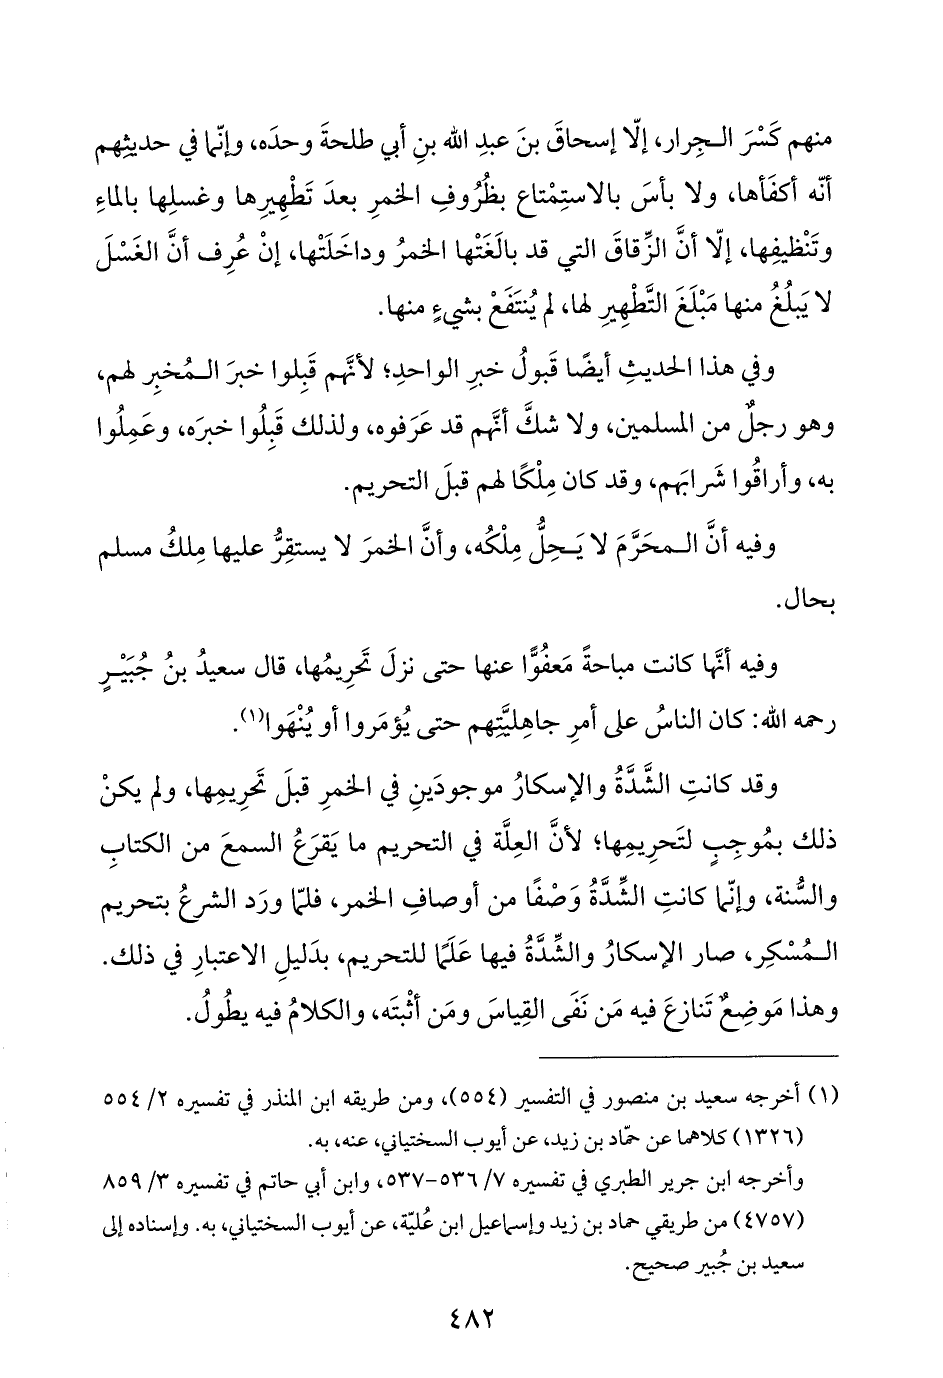 منهم كَسْرَ الـجِرار، إلّا إسحاقَ بنَ عبدِ الله بنِ أبي طلحةَ وحدَه، وإنّما في حديثِهم
أنّه أكفَأها، ولا بأسَ بالاستِمْتاع بظُرُوفِ الخمرِ بعدَ تَطْهِيرِها وغسلِها بالماءِ
وتَنْظيفِها، إلّا أنَّ الزِّقاقَ التي قد بالَغَتْها الخمرُ وداخَلَتْها، إنْ عُرِف أنَّ الغَسْلَ
لا يَبلُغُ منها مَبْلَغَ التَّطْهِيرِ لها، لم يُنتَفَعْ بشيءٍ منها.
وفي هذا الحديثِ أيضًا قَبولُ خبرِ الواحدِ؛ لأنَّهم قَبِلوا خبرَ الـمُخبِرِ لهم،
وهو رجلٌ من المسلمين، ولا شكَّ أنَّهم قد عَرَفوه، ولذلك قَبِلُوا خبرَه، وعَمِلُوا
به، وأراقُوا شَرابَهم، وقد كان مِلْكًا لهم قبلَ التحريم.
وفيه أنَّ الـمحَرَّمَ لا يَـحِلُّ مِلْكُه، وأنَّ الخمرَ لا يستقِرُّ عليها مِلكُ مسلم
بحال.
وفيه أنَّها كانت مباحةً مَعفُوًّا عنها حتى نزلَ تَحرِيمُها، قال سعيدُ بنُ جُبَيْـرٍ
رحمه الله: كان الناسُ على أمرِ جاهِليَّتِهم حتى يُؤمَروا أو يُنْهَوا(١).
وقد كانتِ الشِّدَّةُ والإسكارُ موجودَينِ في الخمرِ قبلَ تَحرِيمِها، ولم يكنْ
ذلك بمُوجِبٍ لتَحرِيمِها؛ لأنَّ العِلَّة في التحريم ما يَقرَعُ السمعَ من الكتابِ
والسُّنة، وإنّما كانتِ الشِّدَّةُ وَصْفًا من أوصافِ الخمر، فلمّا ورَد الشرعُ بتحريم
الـمُسْكِر، صار الإسكارُ والشِّدَّةُ فيها عَلَمًا للتحريم، بدَليلِ الاعتبارِ في ذلك.
وهذا مَوضِعٌ تَنازعَ فيه مَن نَفَى القِياسَ ومَن أثْبتَه، والكلامُ فيه يطُولُ.
(١) أخرجه سعيد بن منصور في التفسير (٥٥٤)، ومن طريقه ابن المنذر في تفسيره ٢/ ٥٥٤
(١٣٢٦) كلاهما عن حمّاد بن زيد، عن أيوب السختياني، عنه، به.
وأخرجه ابن جرير الطبري في تفسيره ٧/ ٥٣٦-٥٣٧، وابن أبي حاتم في تفسيره ٣/ ٨٥٩
(٤٧٥٧) من طريقي حماد بن زيد وإسماعيل ابن عُليّة، عن أيوب السختياني، به. وإسناده إلى
سعيد بن جُبير صحيح.
٤٨٢